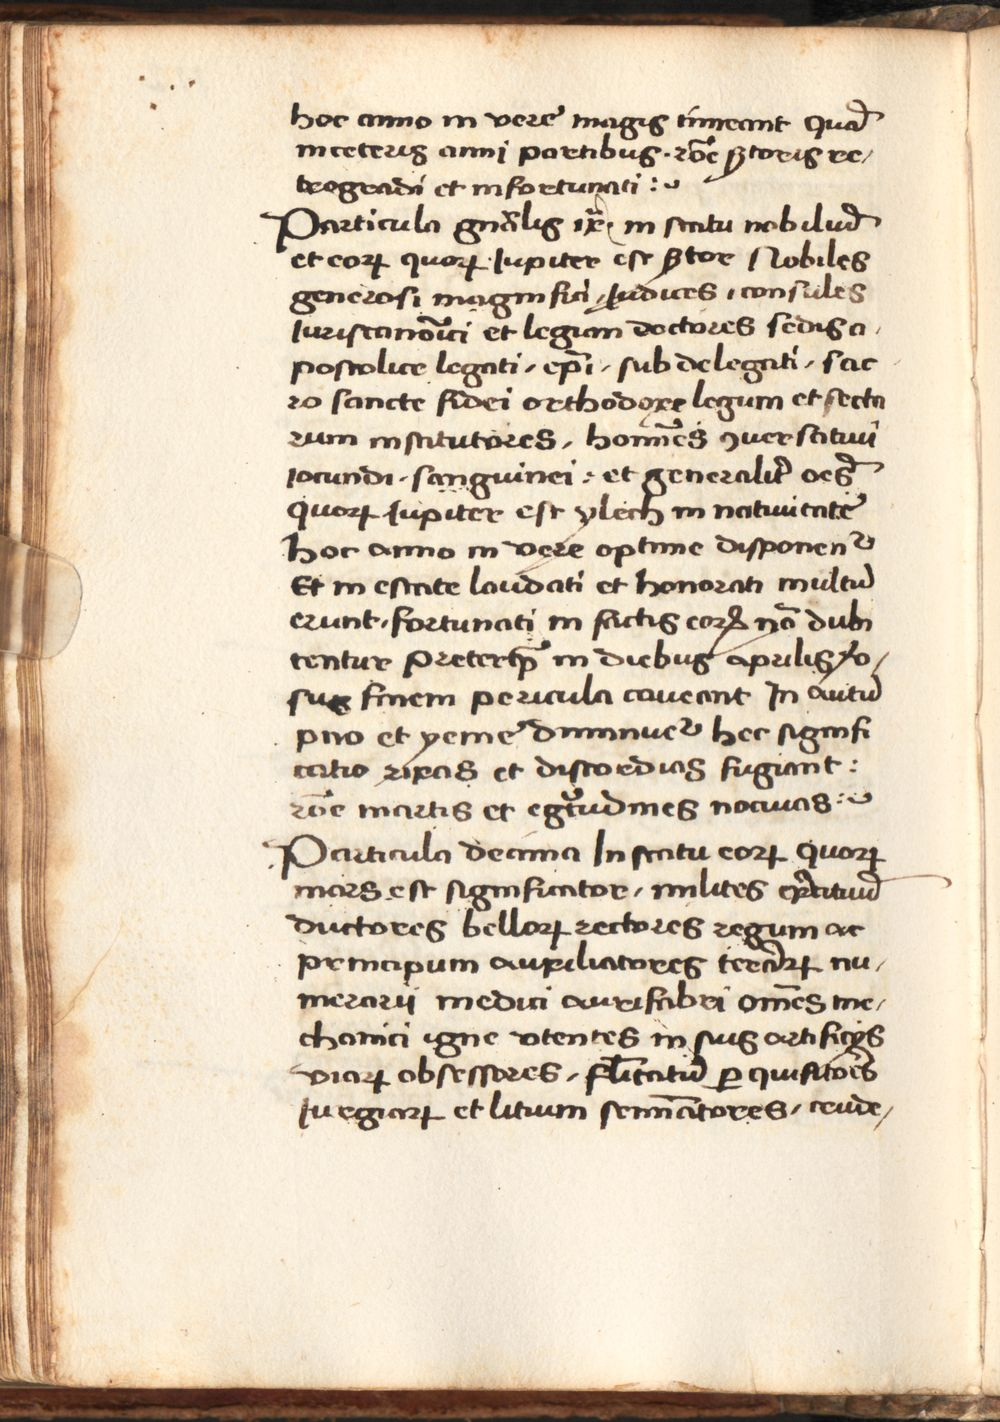 hoc anno in vere magis timeant quā
in ceteris anni partibus. rōe sͥtoris re/
trogradi et infortunati :
Particula gnālis ix. in statu nobiliū
et eorꝝ quorꝝ Iupiter est sͥtor Nobiles
generosi magnifici, Iudices, consules
Iuriscanōici et legum doctores sedis a,
postolice legati, ep̄i, subdelegati, sac
ro sancte fidei orthodoxe legum et secta
rum institutores, homīes ꝯuersatiui
iocundi. sanguinei : et generalit᷑ oēs
quorꝝ Iupiter est ylech in natiuitate
hoc anno in vere optime disponent᷑
Et in estate laudati et honorati multū
erunt, fortunati in factis eorꝝ nō dubi
tentur Preterqͣ in diebus aprilis
finem pericula caueant In autū
pno et yeme diminuet᷑ hec signifi
catio rixas et discordias fugiant :
rōe martis et egͥtudines nociuas :
Particula decima In statu eorꝝ quorꝝ
mars est significator, milites exͤrcituū
ductores bellorꝝ rectores regum ac
principum auxiliatores nu,
merarii medici aurifabri omēs me,
chanici igne vtentes in suis artificijs
viarꝝ obsessores, ꝑquisitores
Iurgiorꝝ et litium semīatores, cende,